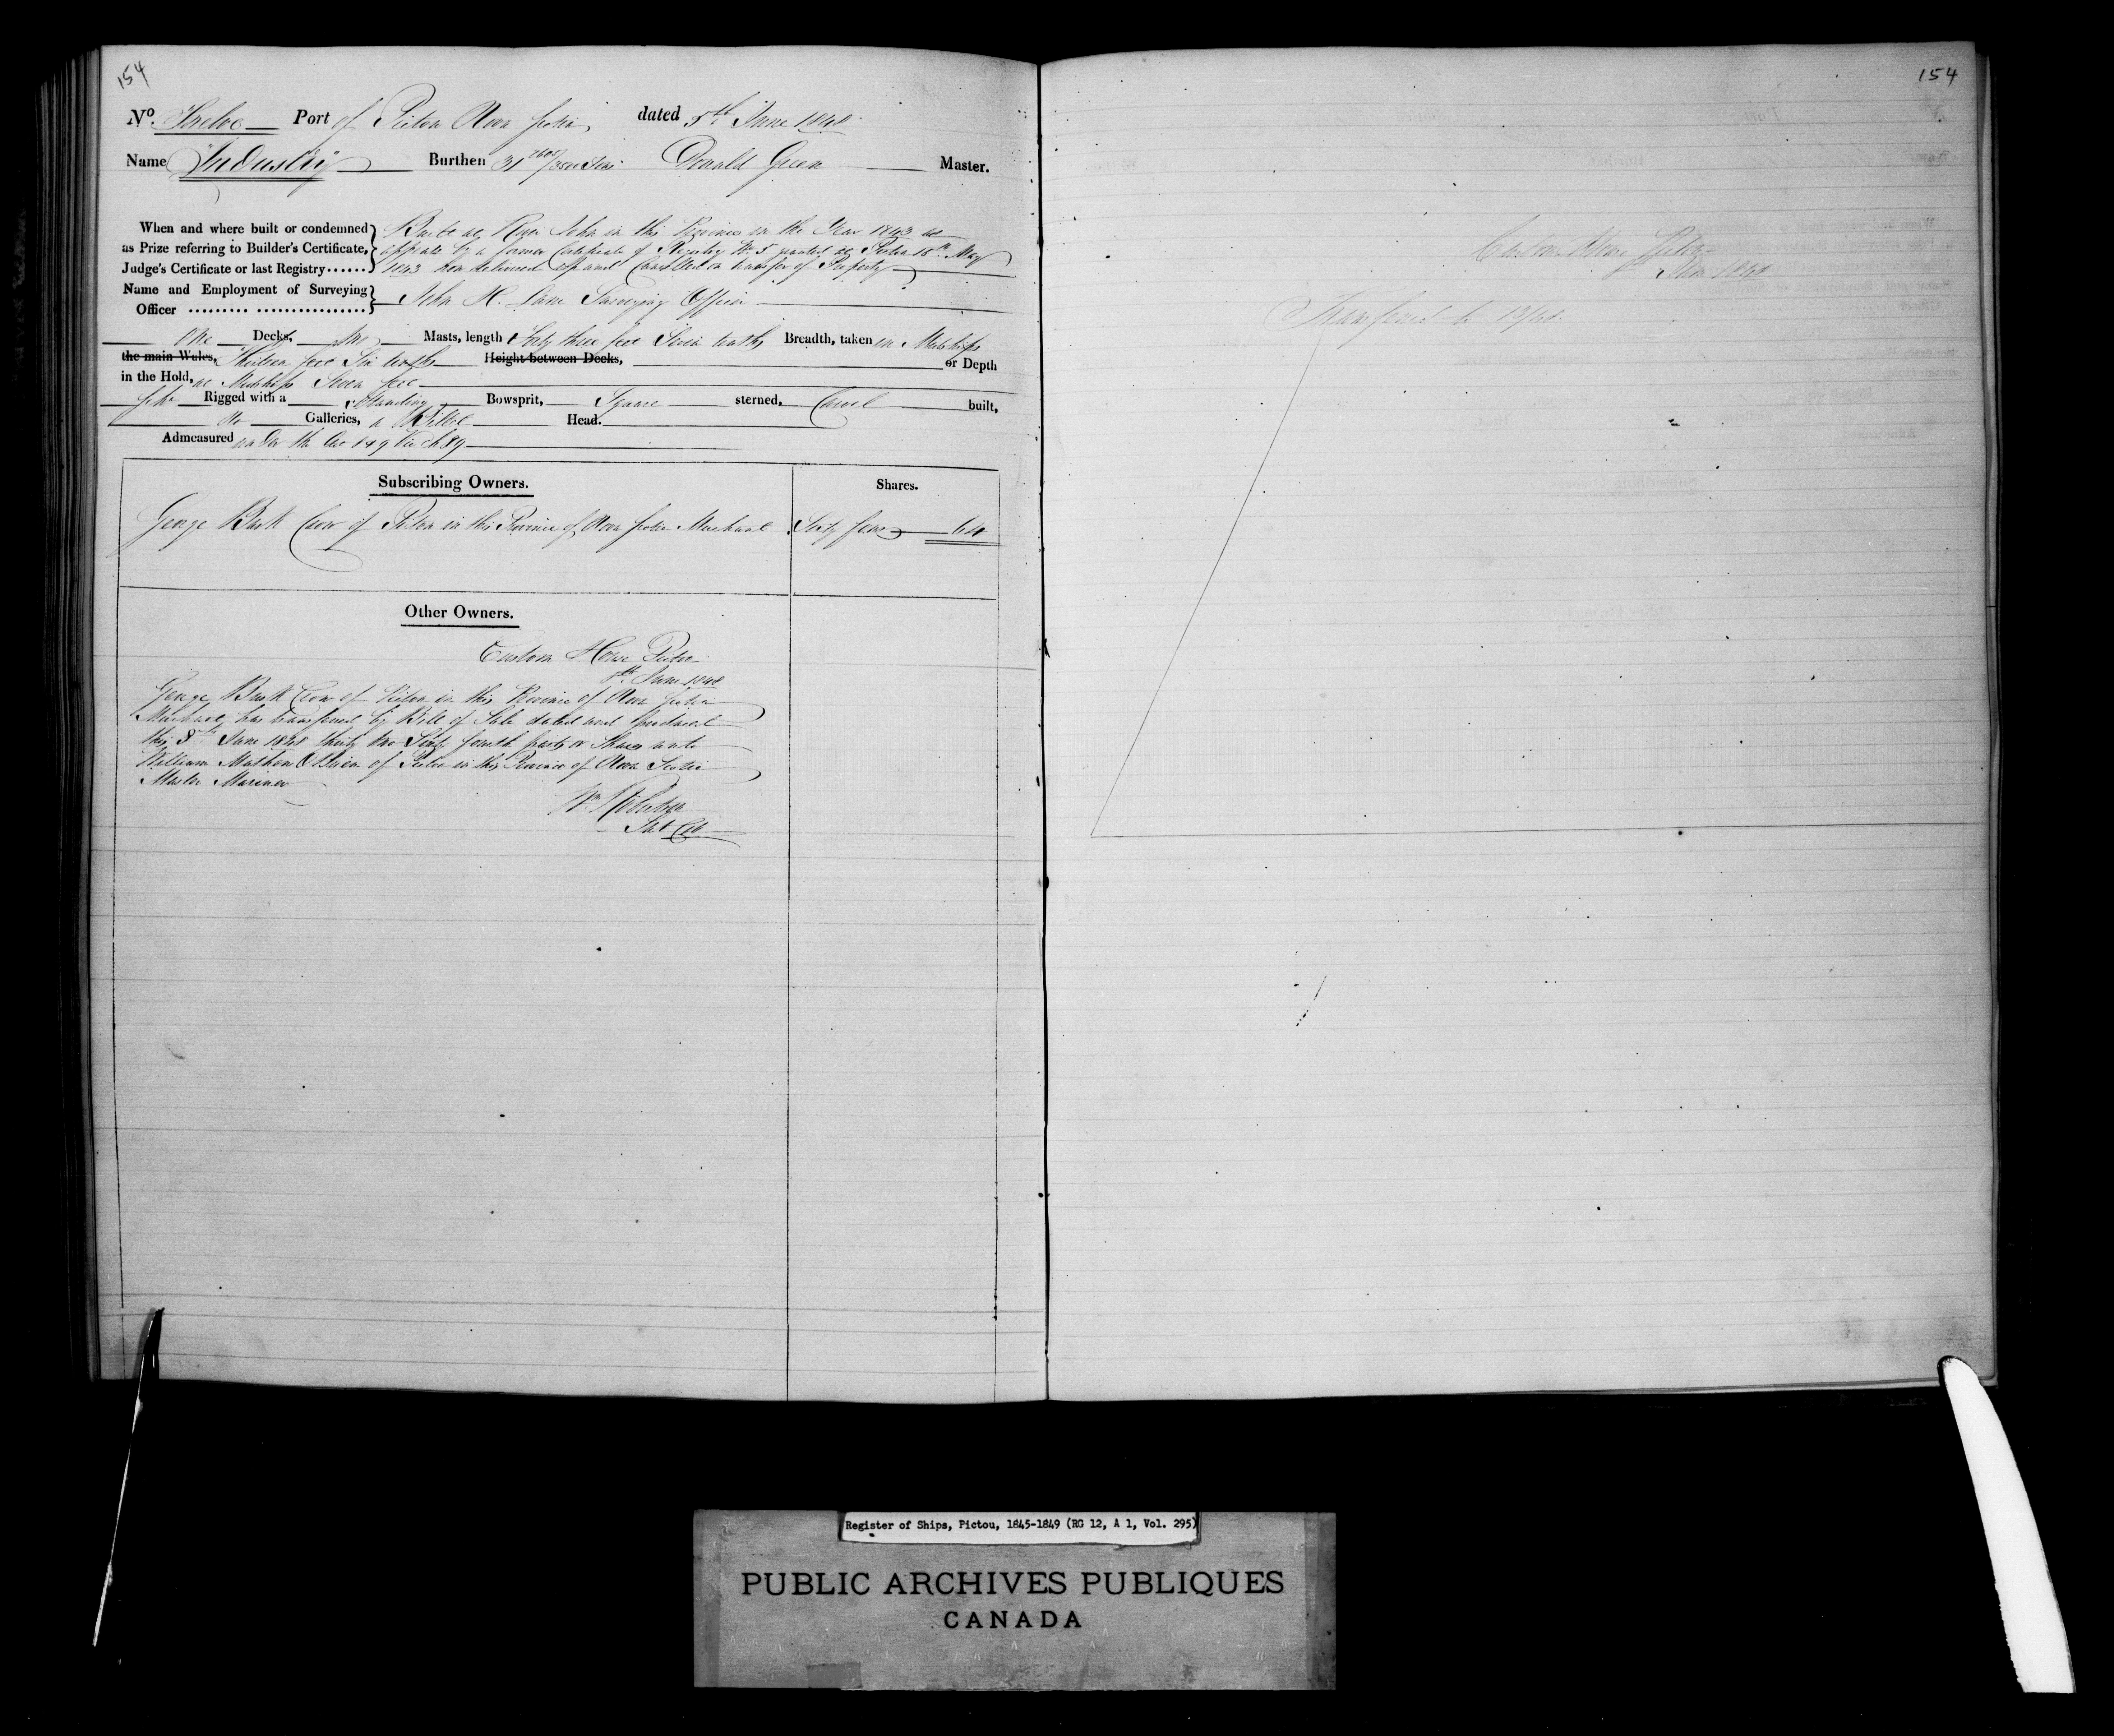 154
No. Twelve Port of Pictou Nova Scotia dated 5th June 1848
Name "Industry" Burthen 31 2605/3500 Tons Donald Green Master.
When and where built or condemned as Prize referring to Builder's Certificate, Judge's Certificate or last Registry......
Built at River John in this Province in the Year 1843 as
appears by a former Certificate of Registry No. 5 granted at Pictou 18th May
1843 now delivered up and Cancelled on transfer of Property
Name and Employment of Surveying Officer ......... ................
John H. Lane Surveying Officer
One Decks, Two Masts, length Forty three feet Seven tenths Breadth, taken in Midships
the main Wales, Thirteen feet Six tenths Height between Decks, or Depth
in the Hold, at Midships Seven feet
Scho Rigged with a Standing Bowsprit, Square sterned, Carvel built,
No Galleries, a Billet Head.
Admeasured under the Act 8 & 9 Vic Ch 89
Subscribing Owners.
Shares.
George Crow of Pictou in the Province of Nova Scotia Merchant Sixty four 64
Other Owners.
Custom House Pictou
8th June 1848
George Crow of Pictou in the Province of Nova Scotia
Merchant has transferred by Bill of Sale dated and produced
this 8th June 1848 thirty two Sixty fourth parts or Shares unto
William OBrien of Pictou in the Province of Nova Scotia
Master Mariner
Wm
154
Custom House Pictou
1848
Transferred to 13/48.
Register of Ships, Pictou, 1845-1849 (RG 12, A 1, Vol. 295)
PUBLIC ARCHIVES PUBLIQUES
CANADA